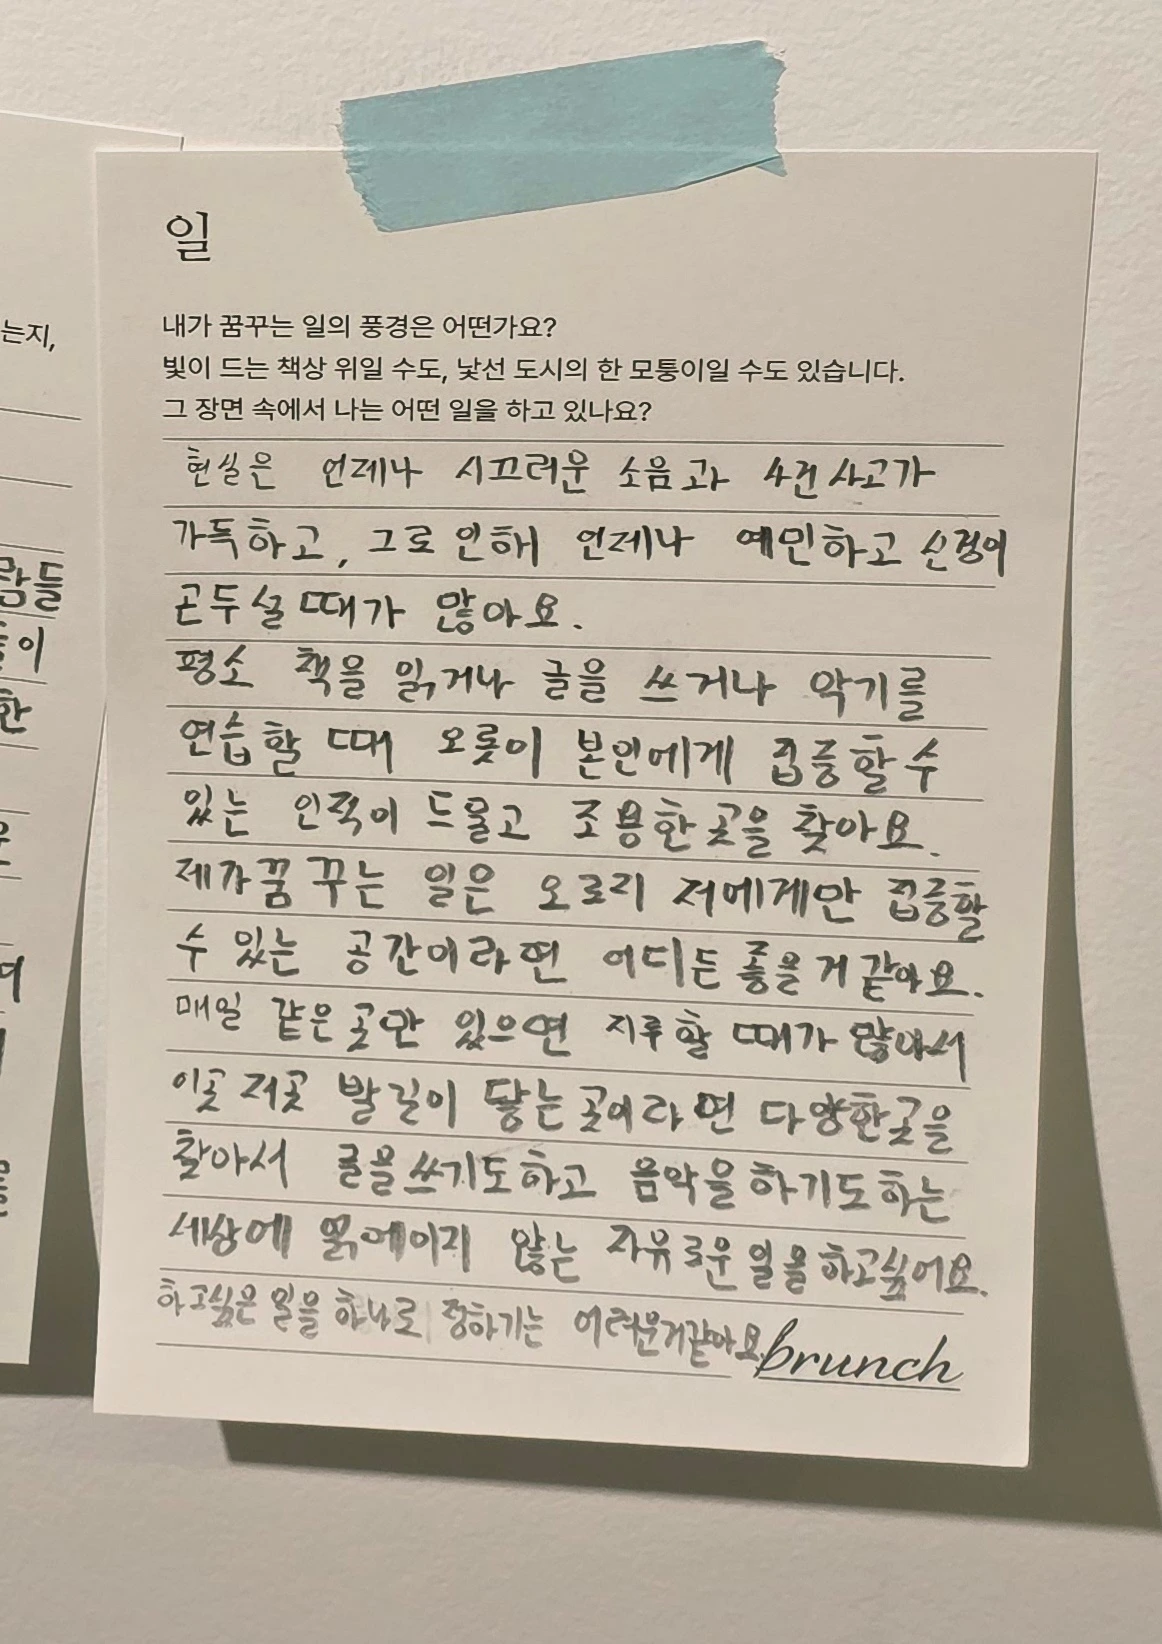 일
내가 꿈꾸는 일의 풍경은 어떤가요?
빛이 드는 책상 위일 수도, 낯선 도시의 한 모퉁이일 수도 있습니다.
그 장면 속에서 나는 어떤 일을 하고 있나요?
현실은 언제나 시끄러운 소음과 사건 사고가
가득하고, 그로 인해 언제나 예민하고 신경이
곤두설 때가 많아요.
평소 책을 읽거나 글을 쓰거나 악기를
연습할 때 오롯이 본인에게 집중할 수
있는 인적이 드물고 조용한 곳을 찾아요.
제가 꿈꾸는 일은 오로지 저에게만 집중할
수 있는 공간이라면 어디든 좋을 거 같아요.
매일 같은 곳만 있으면 지루할 때가 많아서
이곳 저곳 발길이 닿는 곳이라면 다양한 곳을
찾아서 글을 쓰기도 하고 음악을 하기도 하는
세상에 얽메이지 않는 자유로운 일을 하고 싶어요.
하고싶은 일을 하나로 정하기는 어려운거같아요.
brunch
는지,
람들
이
한